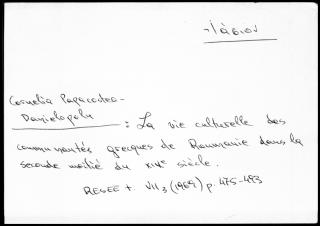 Cornelia Papacostea-
Danielopolu : La vie culturelle des
communautés grecques de Roumanie dans la
seconde moitié du XIXe siècle.
RESEE t. VII3 (1969) p. 475-493